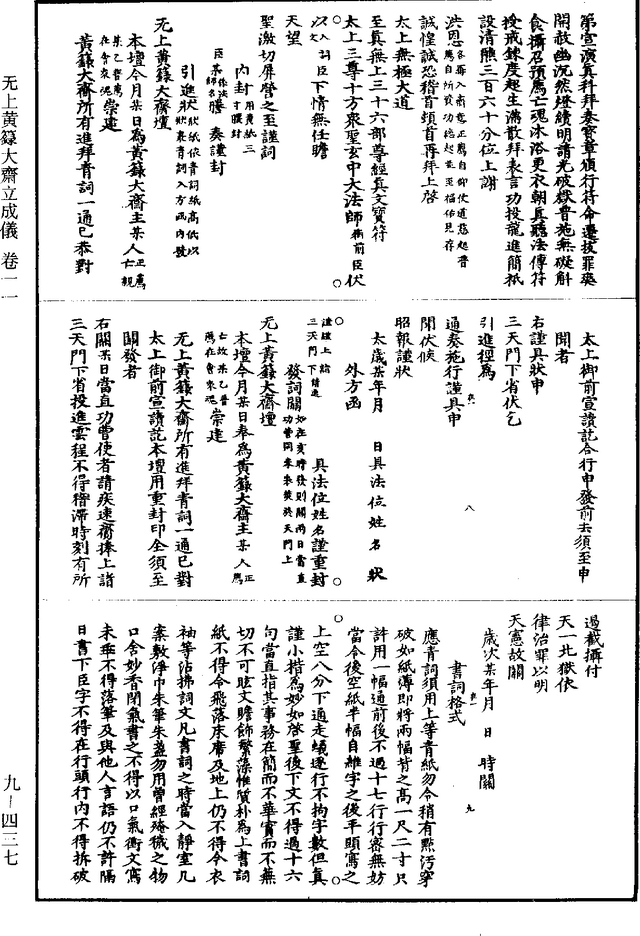 第宣演真科拜奏寳章頒行符命遷拔罪奭
開赦幽沉然燈續明請光破獄普施無礙斛
食攝召預薦亡魂沐浴更衣朝真聽法傳符
授戒鍊度超生滿散拜表言功投龍進簡祇
設清醮三百六十分位上謝
洪恩
誠惶誠恐稽首頓首再拜上啓
太上無極大道
至真無上三十六部尊經真文寳符
太上三尊十方衆聖玄中大法師御前臣伏
以入詞文臣下情無任瞻
天望
聖激切屏營之至謹詞
内封用黄紙三寸腰封
臣系法位姓名謄奏謹封
引進狀狀紙依青詞紙高低以狀裹青詞入方函内發
无上黄籙大齋壇
本壇今月某日為黄籙大齋主某人正薦亡親
某乙普薦在會衆魂崇建
黄籙大齋所有進拜青詞一通已恭對
太上御前宣讀訖合行申發前去須至申
聞者
右謹具狀申
三天門下省伏乞
引進徑為
通奏施行謹具申
聞伏候
昭報謹狀
太歲某年月 日具法位姓名狀
外方函
謹謹上詣三天門下請進 具法位姓名謹重封
發詞關
无上黄籙大齋壇
本壇今月某日奉為黄籙大齋主某人正薦
亡故某乙普薦在會衆魂崇建
无上黄籙大齋所有進拜青詞一通已對
太上御前宣讀訖本壇用重封印全須至
關發者
右關某日當直功曹使者請疾速齎捧上詣
三天門下省投進雲程不得稽滯時刻有所
過截攝付
天一北獄依
律治罪以明
天憲故關
歲次某年月 日 時關
書詞格式
應青詞須用上等青紙勿令稍有點汚穿
破如紙薄即將兩幅背之高一尺二寸只
許用一幅通前後不過十七行行密無妨
當令後空紙半幅自維字之後平頭寫之
上空八分下通走蟻逐行不拘字數但真
謹小楷為妙如啓聖後下文不得過十六
句當直指其事務在簡而不華實而不蕪
切不可眩文贍飾繁藻惟質朴為上書詞
紙不得令飛落床席及地上仍不得令衣
袖等沾拂詞文凡書詞之時當入靜室几
案敷淨巾朱筆朱盞勿用曾經殗穢之物
口含妙香閉氣書之不得以口氣衝文寫
未乖不得落筆及與他人言語仍不許隔
日書下臣字不得在行頭行内不得拆破
无上黄籙大齋立成儀 卷一一
九－四三七